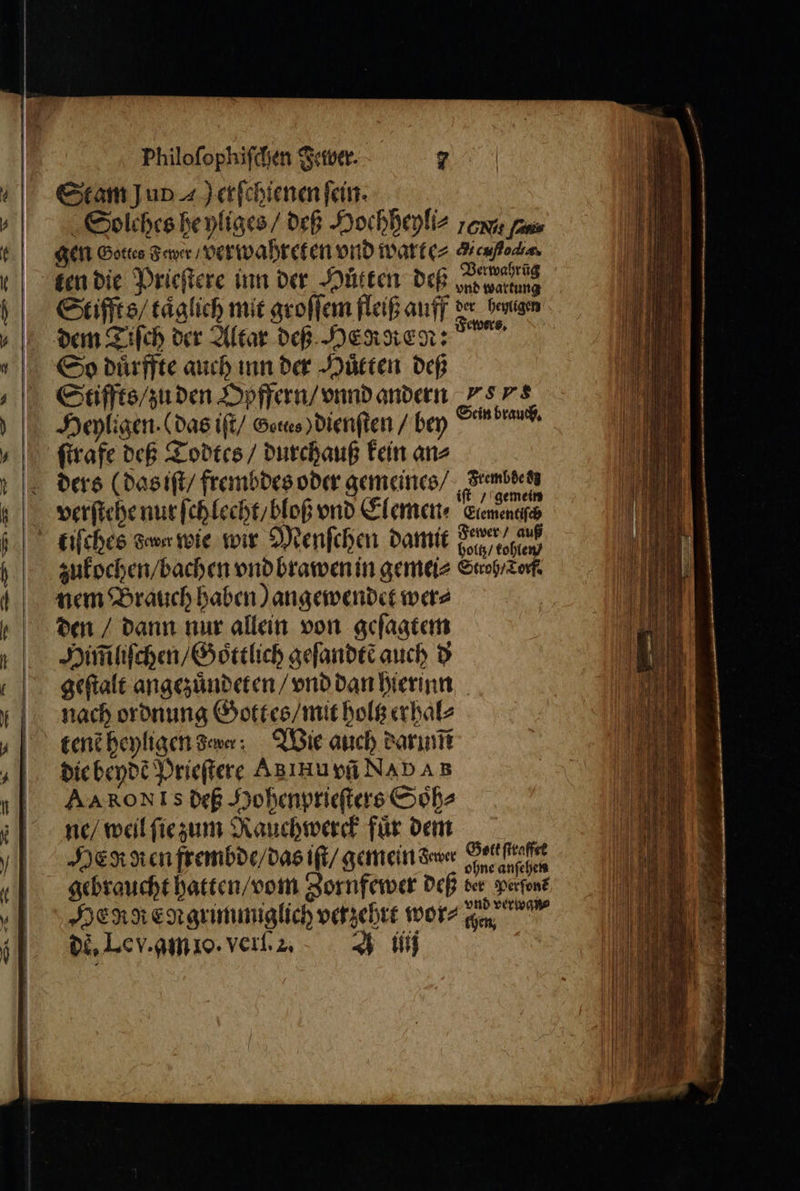 Philoſophiſchen Fewer. 7
Stam Jud 4) erſchienen ſein.
Solches heyliges / deß Hochheyli⸗
gen Gottes Fewer / verwahreten vnd warte⸗
ten die Prieſtere inn der Hůtten deß
Stiffts / tåglich mit groſſem fleiß auff
dem Tiſch der Altar deß HERREN:
So důrffte auch inn der Hůtten deß
Stiffts / zu den Opffern / vnnd andern
Heyligen (das iſt / Gottes) dienſten / bey
ſtrafe deß Todtes / durchauß kein an⸗
ders (das iſt / frembdes oder gemeines /
verſtehe nur ſchlecht / bloß vnd Elemen⸗
tiſches Fewer wie wir Menſchen damit
zukochen / bachen vnd brawen in gemei⸗
nem Brauch haben) angewendet wer⸗
den / dann nur allein von geſagtem
Him̃liſchen / Go̊ttlich geſandtẽ auch d
geſtalt angezůndeten / vnd dan hierinn
nach ordnung Gottes / mit holtz erhal⸗
tenẽ heyligen Fewer: Wie auch darum̃
die beydẽ Prieſtere ABIHU vñ NADAB
AARONIS deß Hohenprieſters So̊h⸗
ne / weil ſie zum Rauchwerck fůr dem
HERREN frembde / das iſt / gemein Fewer
gebraucht hatten / vom Zornfewer deß
HERREN grimmiglich verzehrt wor⸗
dẽ, Lev. am 10. verſ. 2. A iiij
IGNis
& cuſtodia.
Verwahrũg
vnd wartung
der heyligen
Fewers.
VSVS
Sein brauch.
Frembdes
iſt / gemein
Elementiſch
Fewer / auß
holtz / kohlen /
Stroh / Torf.
Gott ſtraffet
ohne anſehen
der Perſonẽ
vnd verwan⸗
then.